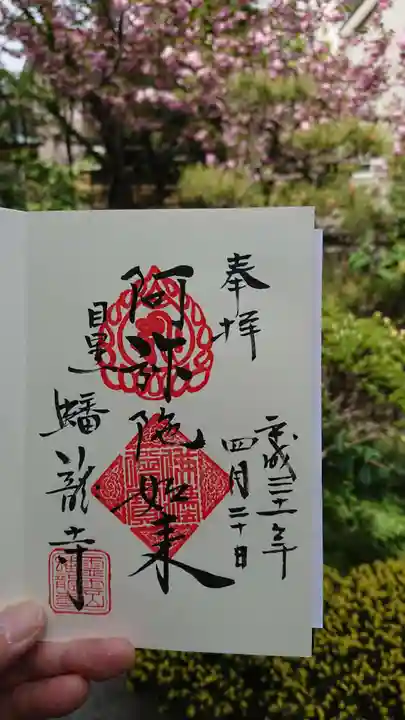 奉拝
平成三十一年
四月二十日
阿弥陀如来
目黒
蟠龍寺